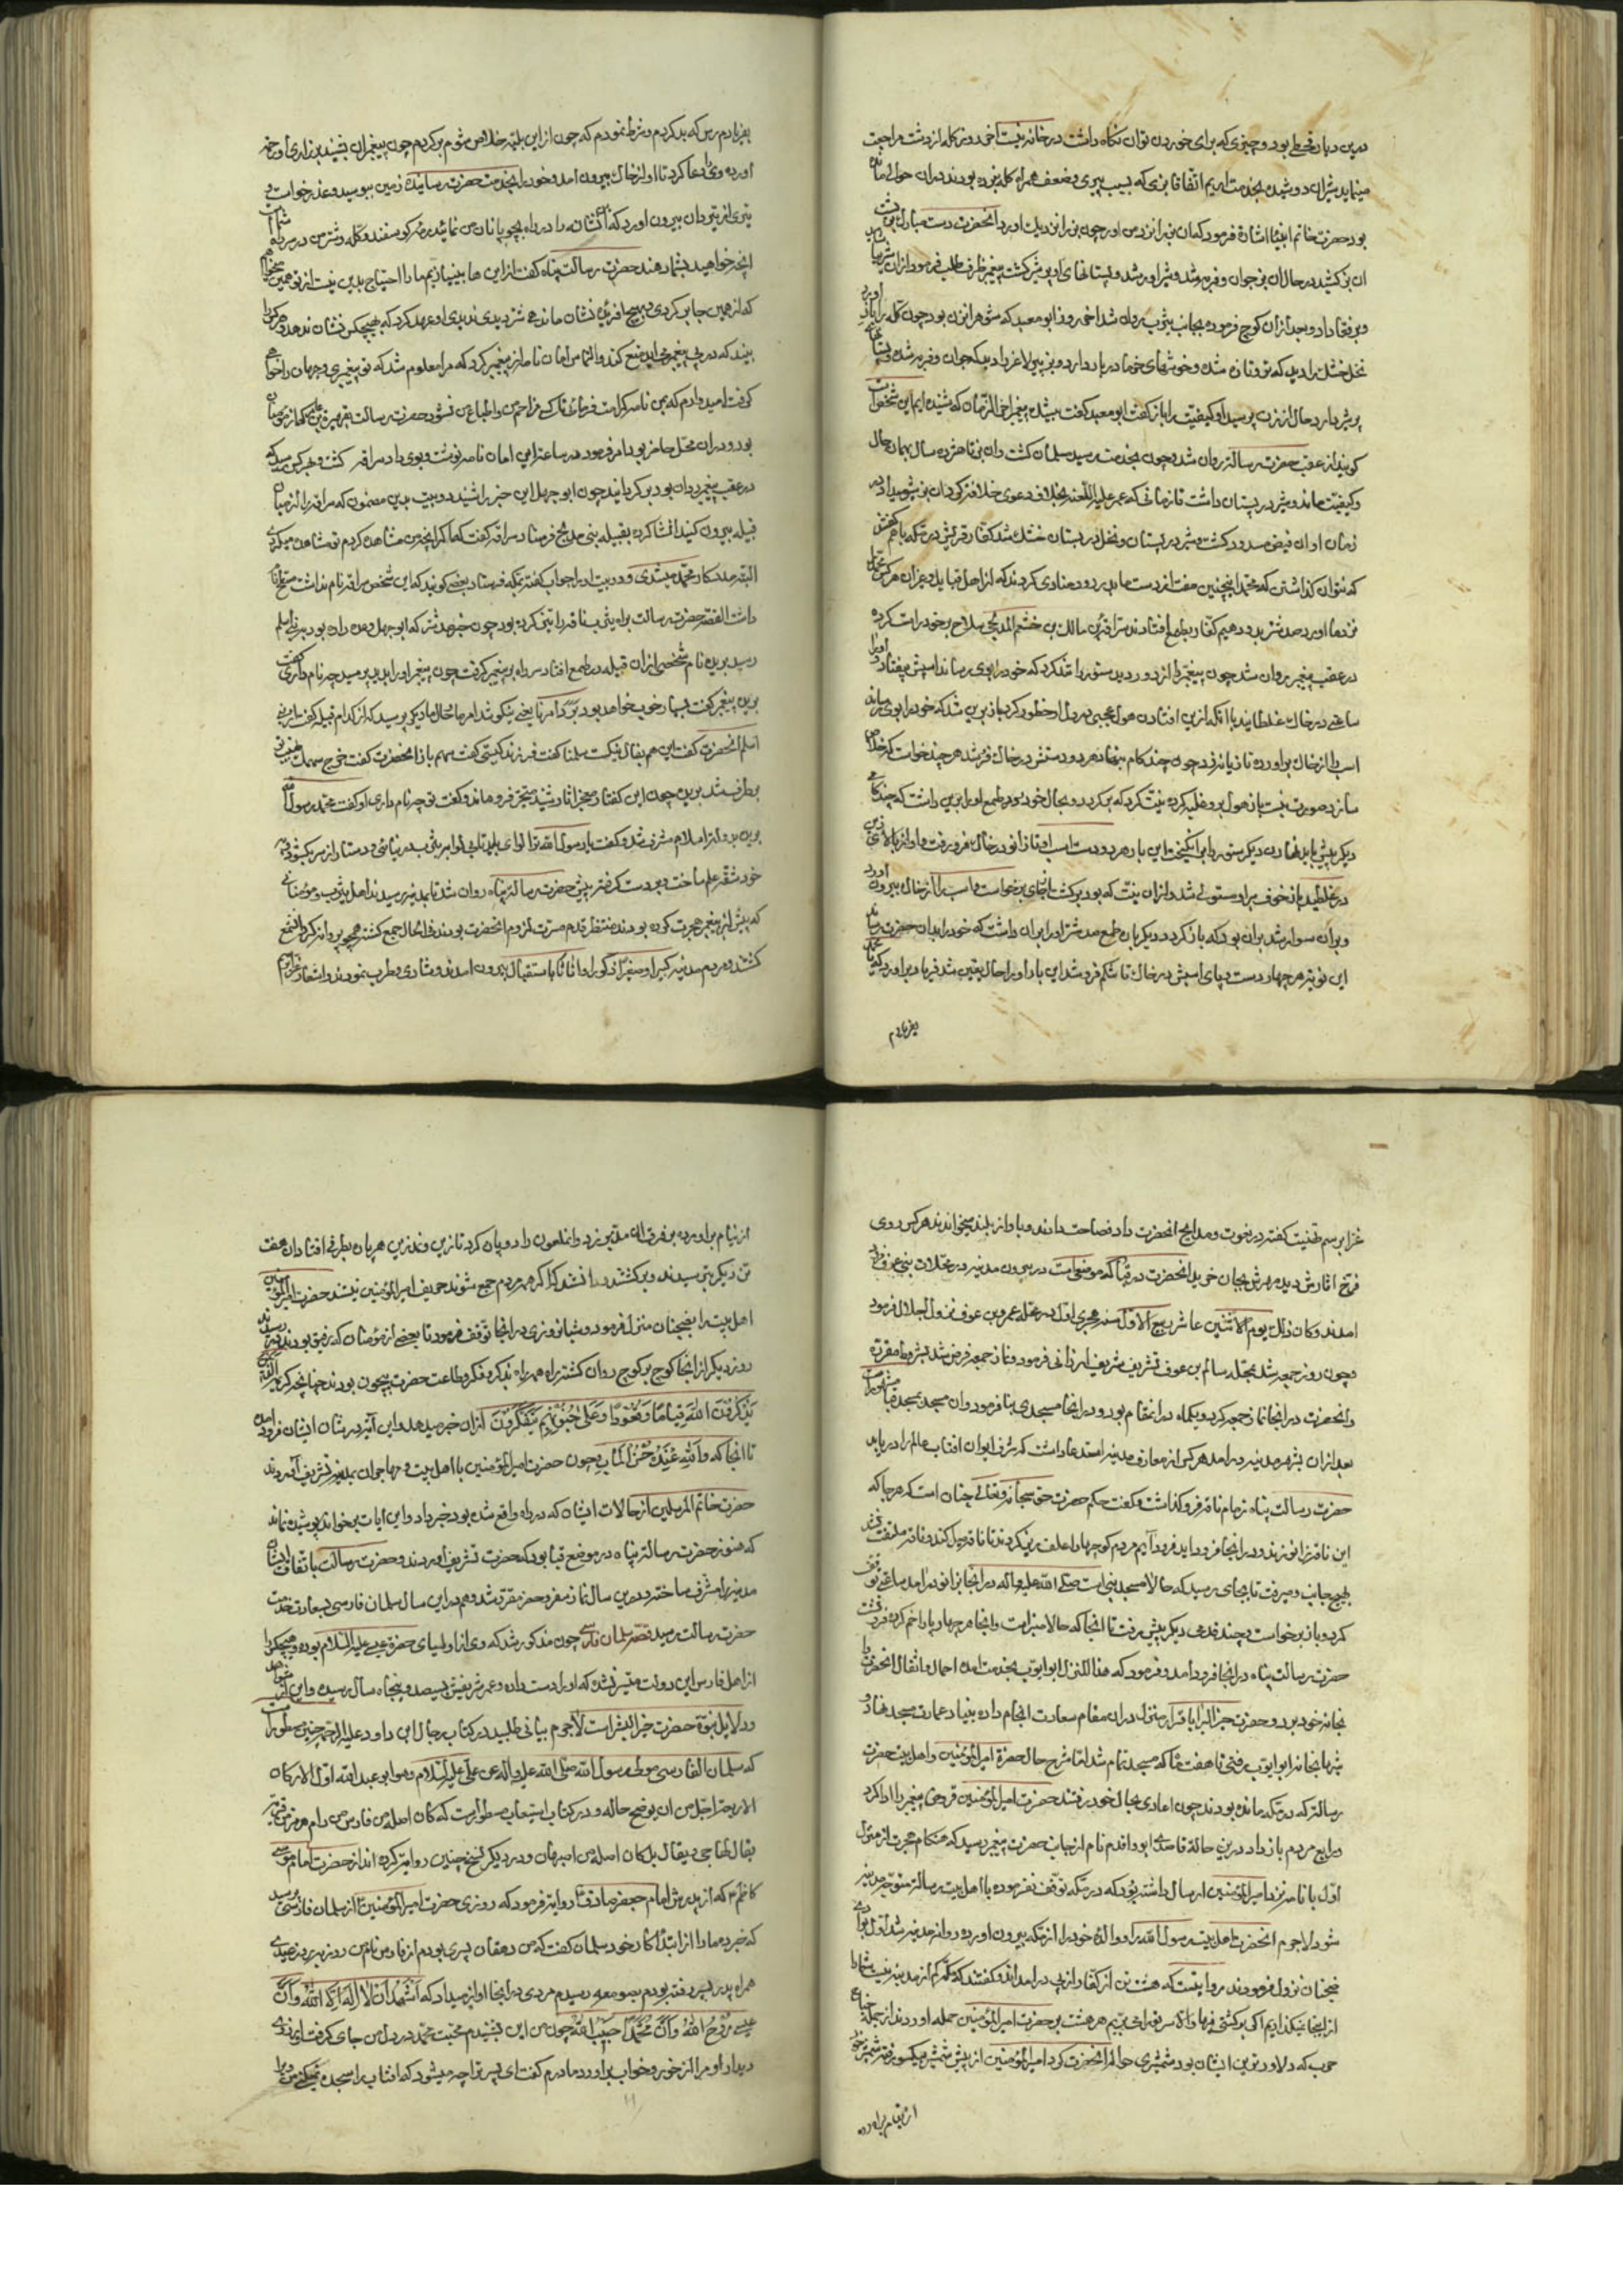 درین دیار قحطی بود و چیزی که برای خوردن توان نگاه داشت در خانه نیست آخر روز کله از دشت مراجعت
مینماید شیران دوشیده بخدمت آوریم اتفاقا بزی که بسبب پیری و ضعف همراه کله نبرده بودند در آن حوالی
بود حضرت خاتم انبیا اشارة فرمود کهان بز را نزد من اور چون بز را نزدیک اورد انحضرت دست مبارک بر پشت
ان بز کشید در حال ان بز جوان و فربه شد و شیر اور شد و پستانهای او پر شیر گشت پیغمبر ظرف طلب فرمود ازان شیر
و برفقا داد و بعد ازان کوچ فرموده بجانب یثرب روان شد اخر روز ابو معبد که شوهر ان زن بود چون کله را باز اورد
نخل خشک را دید که تر و تازه شده و خوشهای خرما در بار دارد و بز پیر لاغر را دید که جوان و فربه شده و پستانهای
پر شیر دارد در حال از زن پرسید او کیفیت را باز گفت ابو معبد کفت پیغمبر اخر الزمان که شنیده ایم این شخص است
کویند از عقب حضرت رسالت روان شد و چون بخدمت رسید مسلمان کشت وان بز تا هژده سال بهمان حال
و کیفیت مانده و شیر در پستان داشت تا زمانی که عمر علیه اللعنه بخلاف دعوی خلافت کرد ان بز
زمان اوان فیض مسدود کشت و شیر در پستان و نخل در بستان خشک شد کفار قریش در مکه با هم کفتند
که نتوان کذاشتن که محمد اینچنین مفت از دست ما بدر رود منادی کردند که از اهل قبایل و غیر ان هر کس محمد را
نزد ما اورد صد شتر بدو دهیم کفار بطمع افتادند سراقة بن مالک بن خثعم المدلجی سلاح بر خود راست کرده
در عقب پیغمبر روان شد چون پیغمبر را از دور دید ستور را تند کرد که خود را بوی رساند اسپش بیفتاد و او را
ساعتی در خاک غلطانید با انکه ازین افتادن هول عجبی در دل او خطور کرد باز برین شد که خود را بوی رساند
اسب را از خاک بر اورده تازیانه زد چون چند کام بنهاد هر دو دستش در خاک فرو شد هر چند خواست که خلاص
سازد صورت نبست باز هول برو غلبه کرده نیت کرد که برکردد و بجال خود بود طمع او را بر این داشت که چند کامی
دیگر پیش باید نهادن دیگر ستور را بر انکیخت این بار هر دو دست اسب او تا زانو در خاک فرو رفت و او از بالای زین
در غلطید باز خوف بر او مستولی شد و ازان نیت که بود برکشت از جای برخواست و اسب را از خاک بیرون اورد
و بران سوار شد بران بود که باز کردد دیکر باره طمع صد شتر او را بران داشت که خود را بدان حضرت رساند
این نوبت هر چهار دست و پای اسبش در خاک تا شکم فرو شد این بار او را حال یقین شد فریاد بر اورد که یا محمد
بفریادم
بفریادم رس که بد کردم و شرط نمودم که چون از این بلیه خلاص شوم برکردم چون پیغمبر ان بشنید بزاری او رحم
اورده وی را دعا کرد تا او از خاک بیرون امد و خود را بخدمت حضرت رسانیده زمین ببوسید و عذر خواست و
تیری از تیردان بیرون اورد که این نشان را در راه بچوپانان من نمائید رمه کوسفند و کله و شتر من در سر راه شماست
انچه خواهید بشما دهند حضرت رسالت پناه کفت از این ها بینیازیم ما را احتیاج بدین نیست از تو همین میخواهم
که از همین جا برکردی و بهیچ افریده نشان ما ندهی شتر دیدی ندیدی او عهد کرد که بهیچکس نشان ندهد و هر کرا
بیند که در پی پیغمبر می اید منع کند و التماس امان نامه از پیغمبر کرد که مرا معلوم شد که تو پیغمبری و جهان را خواهی
کرفت امیدوارم که بمن نامه کرامت فرمائی تا کسی مزاحم من و اتباع من نشود حضرت رسالت
بود و در ان محل حاضر بود امر فرمود در ساعت از این امان نامه نوشت و بوی داد سراقه کشت و هر کس میدید که
در عقب پیغمبر روان بود برکردانید چون ابوجهل این خبر را شنید دو بیت بدین مضمون که سراقه را از میان
قبیله بیرون کنید انشا کرده بقبیله بنی مدلج فرستاد سراقه کفت که اکر انچه من مشاهده کردم تو مشاهده میکردی
البته مددکار محمد میشدی و دو بیت او را جواب کفته بمکه فرستاد بعضی کویند که این شخص سراقه نام نداشت
داشت القصه حضرت رسالت براه یثرب ناقه را تیز کرده بود چون خبر صد شتر که ابوجهل وعده داده بود به بنی اسلم
رسید بریده نام شخصی ازان قبیله در طمع افتاد سر راه بر پیغمبر کرفت چون پیغمبر او را بدید پرسید چه نام داری کفت
بریده پیغمبر کفت بسیار خوب خواهد بود برد امرنا یعنی نیکو شد امر ما بحال ما دیگر پرسید که از کدام قبیله کفت از بنی
اسلم انحضرت کفت این هم بفال نیک است سلمنا کفت فرزند کیستی کفت سهم باز انحضرت کفت خرج سهمک
بطرف شد بریده چون این کفتار معجز اثار شنید متحیر فرو ماند و کفت تو چه نام داری او کفت محمد رسول الله
بریده بدولت اسلام مشرف شد و کفت یا رسول الله ترا لوای باید تا بی لوا به یثرب در نیائی و دستار از سر بکشود و
خود شقه علم ساخت و بدست کرفته پیش حضرت رسالت پناه روان شد تا بمدینه رسیدند اهل یثرب و مؤمنانی
که پیش از پیغمبر هجرت کرده بودند منتظر قدم مسرت لزوم انحضرت بودند فی الحال جمع کشته همچو پروانه کرد ان شمع
کشتند و مردم مدینه کبیرا و صغیرا ذکورا و اناثا باستقبال بیرون امدند و شادی و طرب نمودند و اشعار
غرا برسم تهنیت کفته در نعوت و مدایح انحضرت داد فصاحت دادند و باواز بلند میخواندند هر کس روی
فرخ اثارش دید مهرش بجان خرید انحضرت در قبا که موضعی است در بیرون مدینه در محلات بنی عوف فرود
امدند و کان ذلک یوم الاثنین عاشر ربیع الاول سنه هجری اول در محله عمرو بن عوف نزول اجلال فرمود
و چون روز جمعه شد بمحله سالم بن عوف تشریف شریف ارزانی فرمود و نماز جمعه فرض شد بشروط مقرره
و انحضرت در انجا نماز جمعه کرد و یکماه در انمقام بود و در انجا مسجدی بنا فرمود وان مسجد بمسجد قبا مشهور است
بعد ازان بشهر مدینه در امد هر کس از معارف مدینه استدعا داشت که شرف ایوان افتاب عالم را دریابد
حضرت رسالت پناه زمام ناقه فرو کذاشت و کفت حکم حضرت حق سبحانه و تعالی چنان است که هر جا که
این ناقه زانو زند و در انجا فرود اید فرود آیم مردم کوچها را علف ریز کردند تا ناقه میل کند و ناقه ملتفت نشد
بهیچ جانب و میرفت تا بجای رسید که حالا مسجد نبی است صلی الله علیه و اله در انجا بزانو در امد ساعتی توقف
کرد و باز برخواست و چند قدمی دیگر پیش رفت تا انجا که حالا منبر است و انجا هر چهار پا را خم کرده فرو نشست
حضرت رسالت پناه در انجا فرود امد و فرمود که هذا المنزل ابو ایوب بخدمت امده احمال و اثقال انحضرت را
بخانه خود برد و حضرت خیر البرایا قرار منزل در ان مقام سعادت انجام داده بنیاد عمارت مسجد نهاد و
شبها بخانه ابو ایوب رفتی تا هفت ماه که مسجد تمام شد اما شرح حال حضرة امیر المؤمنین و اهل بیت حضرت
رسالت که در مکه مانده بودند چون اعادی بحال خود رفتند حضرت امیر المؤمنین قروض پیغمبر را ادا کرد
ودایع مردم باز داد در این حالت قاصدی ابو واقد نام از جانب حضرت پیغمبر رسید که هنکام هجرت از منزل
اول با نامه نزد امیر المؤمنین ارسال داشته بود که در مکه توقف نفرموده با اهل بیت رسالت متوجه مدینه
شود لاجرم انحضرت اهل بیت رسول الله را و والده خود را از مکه بیرون اورده روانه مدینه شد اول
ضجنان نزول فرمودند مروایست که هشت تن از کفار از پی در امدند و کفتند که
از اینجا نمیکذاریم اکر برکشتی فبها والا سرت میبریم هر هشت بر حضرت امیر المؤمنین حمله اوردند از جمله جناح
حرب که دلاورترین ایشان بود شمشیری حواله انحضرت کرد امیر المؤمنین از پیش شمشیر میکسو رفته شمشیر خود
از نیام براورده
از نیام براورده بر فرق ان ملعین زد و انملعون را دو پاره کرد تا زین و زین هر پاره بطرفی افتاد ان هفت
تن دیگر بترسیدند و برکشتند و دانستند که اکر همه مردم جمع شوند حریف امیر المؤمنین نیستند حضرت امیر المؤمنین
اهل بیت را بضجنان منزل فرمود و شبانروزی در انجا توقف فرمود تا بعضی از مؤمنان که رفیق بودند رسیدند
روز دیگر از انجا کوچ بر کوچ روان کشته براه همه راه بذکر و فکر و طاعت حضرت بیچون بودند چنانچه کریمه الذین
یذکرون الله قیاما وقعودا وعلی جنوبهم یتفکرون ازان خبر میدهد و این آیه در شان ایشان فرود امده
تا انجا که والله عنده حسن الماب چون حضرت امیر المؤمنین با اهل بیت و مهاجران بمدینه تشریف آوردند
حضرت خاتم المرسلین از حالات ایشان که در راه واقع شده بود خبر داد و این آیات بر خواند پوشیده نماند
که هنوز حضرت رسالت پناه در موضع قبا بود که حضرت تشریف اوردند و حضرت رسالت باتفاق ایشان
مدینه را مشرف ساخت و درین سال نماز سفر و حضر مقرر شد و هم در این سال سلمان فارسی بسعادت خدمت
حضرت رسالت رسید قصه سلمان فارسی چون مذکور شد که وی از اوصیای حضرة عیسی علیه السلام بوده و هیچکرا
از اهل فارس این دولت میسر نشد که او را دست داده و عمر شریفش بسیصد و پنجاه سال رسیده و این
و دلایل نبوة حضرت خیر البشر است لاجرم بیانی طلبید در کتاب رجال ابن داود علیه الرحمه چنین مسطور است
که سلمان الفارسی مولی رسول الله صلی الله علیه واله عن علی علیه السلام وهو ابو عبد الله اول الارکان
الاربعة اجل من ان یوضح حاله و در کتاب استیعاب مسطور است که کان اصله من فارس من رام هرمز من قریة
یقال لها جی و یقال بل کان اصله من اصبهان و در دیگر نسخ چنین روایت کرده اند از حضرت امام موسی
کاظم که از پدرش امام جعفر صادق روایت فرمود که روزی حضرت امیر المؤمنین از سلمان فارسی پرسید
که خبر ده ما را از ابتدای کار خود سلمان کفت که من دهقان پسری بودم از فارس نام من روزبه روز عیدی
همراه پدر بسیر رفته بودم بصومعه رسیدم مردی در انجا اواز میداد که اشهد ان لا اله الا الله وان
عیسی روح الله وان محمدا حبیب الله چون من این بشنیدم محبت محمد در دل من جای کرفت
دیدار او مرا از خور و خواب براورد مادرم کفت ای پسر ترا چه میشود که افتاب را سجده نمیکنی من
١١